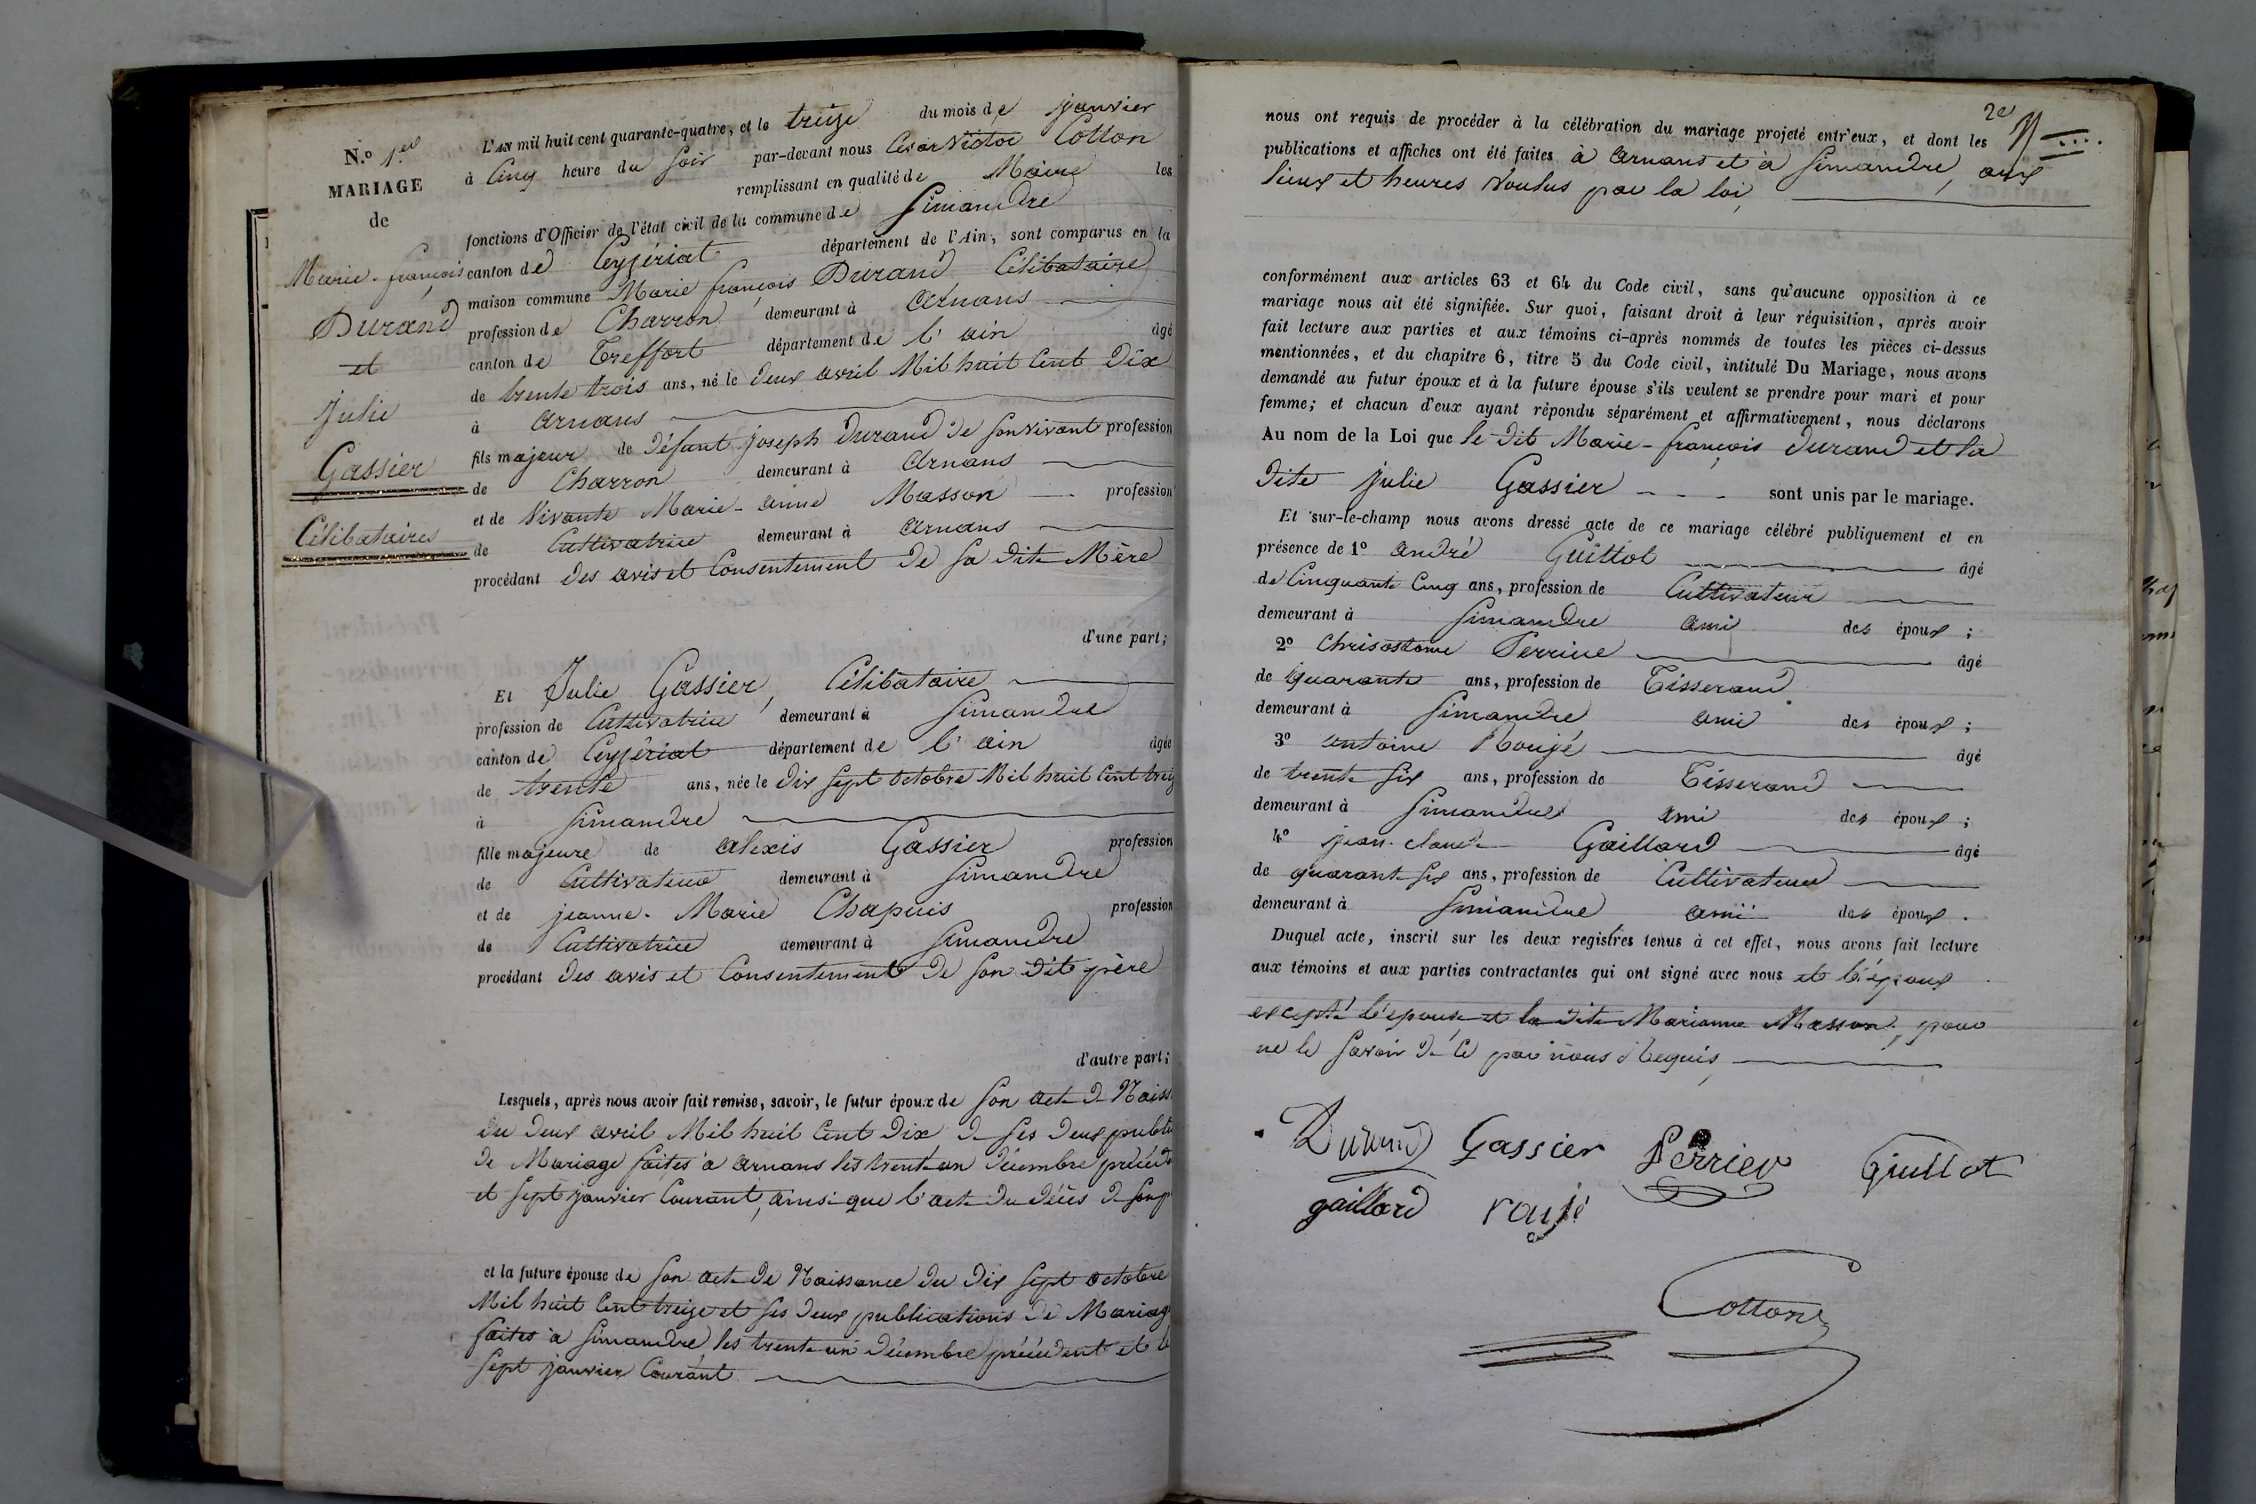 N.o 1.er
MARIAGE
de
Marie-françois
Durand
et
Julie
Gassier
Célibataires
L'AN mil huit cent quarante-quatre, et le treize du mois de janvier
à Cinq heure du Soir par-devant nous César Victor Cotton
remplissant en qualité de Maire les
fonctions d'Officier de l'état civil de la commune de Simandre
canton de Ceyzériat département de l'Ain, sont comparus en la
maison commune Marie françois Durand Célibataire
profession de Charron demeurant à arnans
canton de Treffort département de l'ain âgé
de trente trois ans, né le deux avril Mil huit Cent Dix
à arnans
fils majeur de défunt joseph durand de son vivant profession
de Charron demeurant à arnans
et de vivante Marie-anne Masson profession
de Cultivatrice demeurant à arnans
procédant des avis et Consentement de sa dite Mère
d'une part;
Et Julie Gassier, Célibataire
profession de Cultivatrice demeurant à Simandre
canton de Ceyzériat département de l'ain âgée
de trente ans, née le dix sept octobre Mil huit Cent treiz
à Simandre
fille majeure de alexis Gassier profession
de Cultivateur demeurant à Simandre
et de jeanne-Marie Chapuis profession
de Cultivatrice demeurant à Simandre
procédant des avis et Consentement de son dit père
d'autre part;
Lesquels, après nous avoir fait remise, savoir, le futur époux de son acte de Naiss
du deux avril Mil huit Cent Dix de ses deux public
de Mariage faites à arnans les trente un décembre précéde
et sept janvier Courant, ainsi que l'acte du décès de son p
et la future épouse de son acte de Naissance du dix sept octobre
Mil huit Cent treize et ses deux publications de Mariage
faites à Simandre les trente un décembre précédent et le
sept janvier Courant
2e
nous ont requis de procéder à la célébration du mariage projeté entr'eux, et dont les
publications et affiches ont été faites à arnans et à Simandre, aux
lieux et heures voulus par la loi,
conformément aux articles 63 et 64 du Code civil, sans qu'aucune opposition à ce
mariage nous ait été signifiée. Sur quoi, faisant droit à leur réquisition, après avoir
fait lecture aux parties et aux témoins ci-après nommés de toutes les pièces ci-dessus
mentionnées, et du chapitre 6, titre 5 du Code civil, intitulé Du Mariage, nous avons
demandé au futur époux et à la future épouse s'ils veulent se prendre pour mari et pour
femme; et chacun d'eux ayant répondu séparément et affirmativement, nous déclarons
Au nom de la Loi que le dit Marie-françois durand et la
dite julie Gassier sont unis par le mariage.
Et sur-le-champ nous avons dressé acte de ce mariage célébré publiquement et en
présence de 1o andré Guillot âgé
de Cinquante Cinq ans, profession de Cultivateur
demeurant à Simandre ami des époux;
2o Chrisostome Perrier âgé
de quarante ans, profession de Tisserand
demeurant à Simandre ami des époux;
3o antoine Rougé âgé
de trente six ans, profession de Tisserand
demeurant à Simandre ami des époux;
4o jean-claude Gaillard âgé
de quarante six ans, profession de Cultivateur
demeurant à Simandre ami des époux.
Duquel acte, inscrit sur les deux registres tenus à cet effet, nous avons fait lecture
aux témoins et aux parties contractantes qui ont signé avec nous et l'époux
excepté l'épouse et la dite Marianne Masson, pour
ne le savoir de ce par nous Requis
Durand Gassier Perrier Guillot
gaillard rougé
Cotton